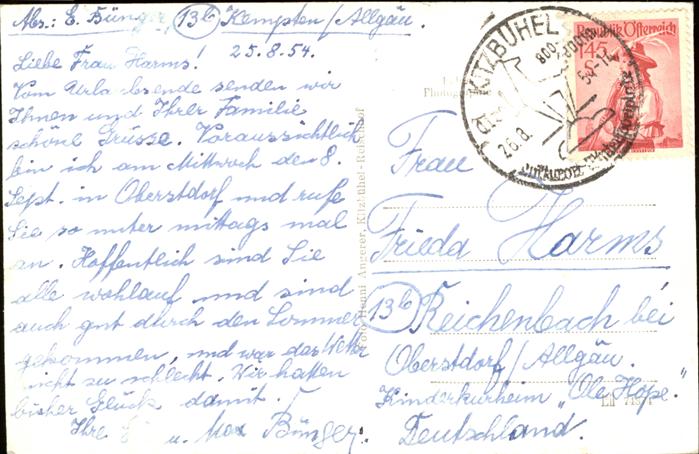 Abs.: E. Bünger, 13b Kempten/Allgäu.
25.8.54.
Liebe Frau Harms!
Vom Urlaubsende senden wir
Ihnen und Ihrer Familie
schöne Grüsse. Voraussichtlich
bin ich am Mittwoch den 8.
Sept. in Oberstdorf und rufe
Sie so unter mittags mal
an. Hoffentlich sind Sie
alle wohlauf und sind
auch gut durch den Sommer
gekommen, und war das Wetter
nicht zu schlecht. Wir hatten
bisher Glück damit.
Ihre E. u. Max Bünger.
Foto Henni Angerer, Kitzbühel-Reischhof
KITZBÜHEL
26.8. 54-14
800-
Republik Österreich
1.45 S
Frau
Frieda Harms
13b Reichenbach bei
Oberstdorf/Allgäu.
Kinderkurheim "Ole Hope"
Deutschland.